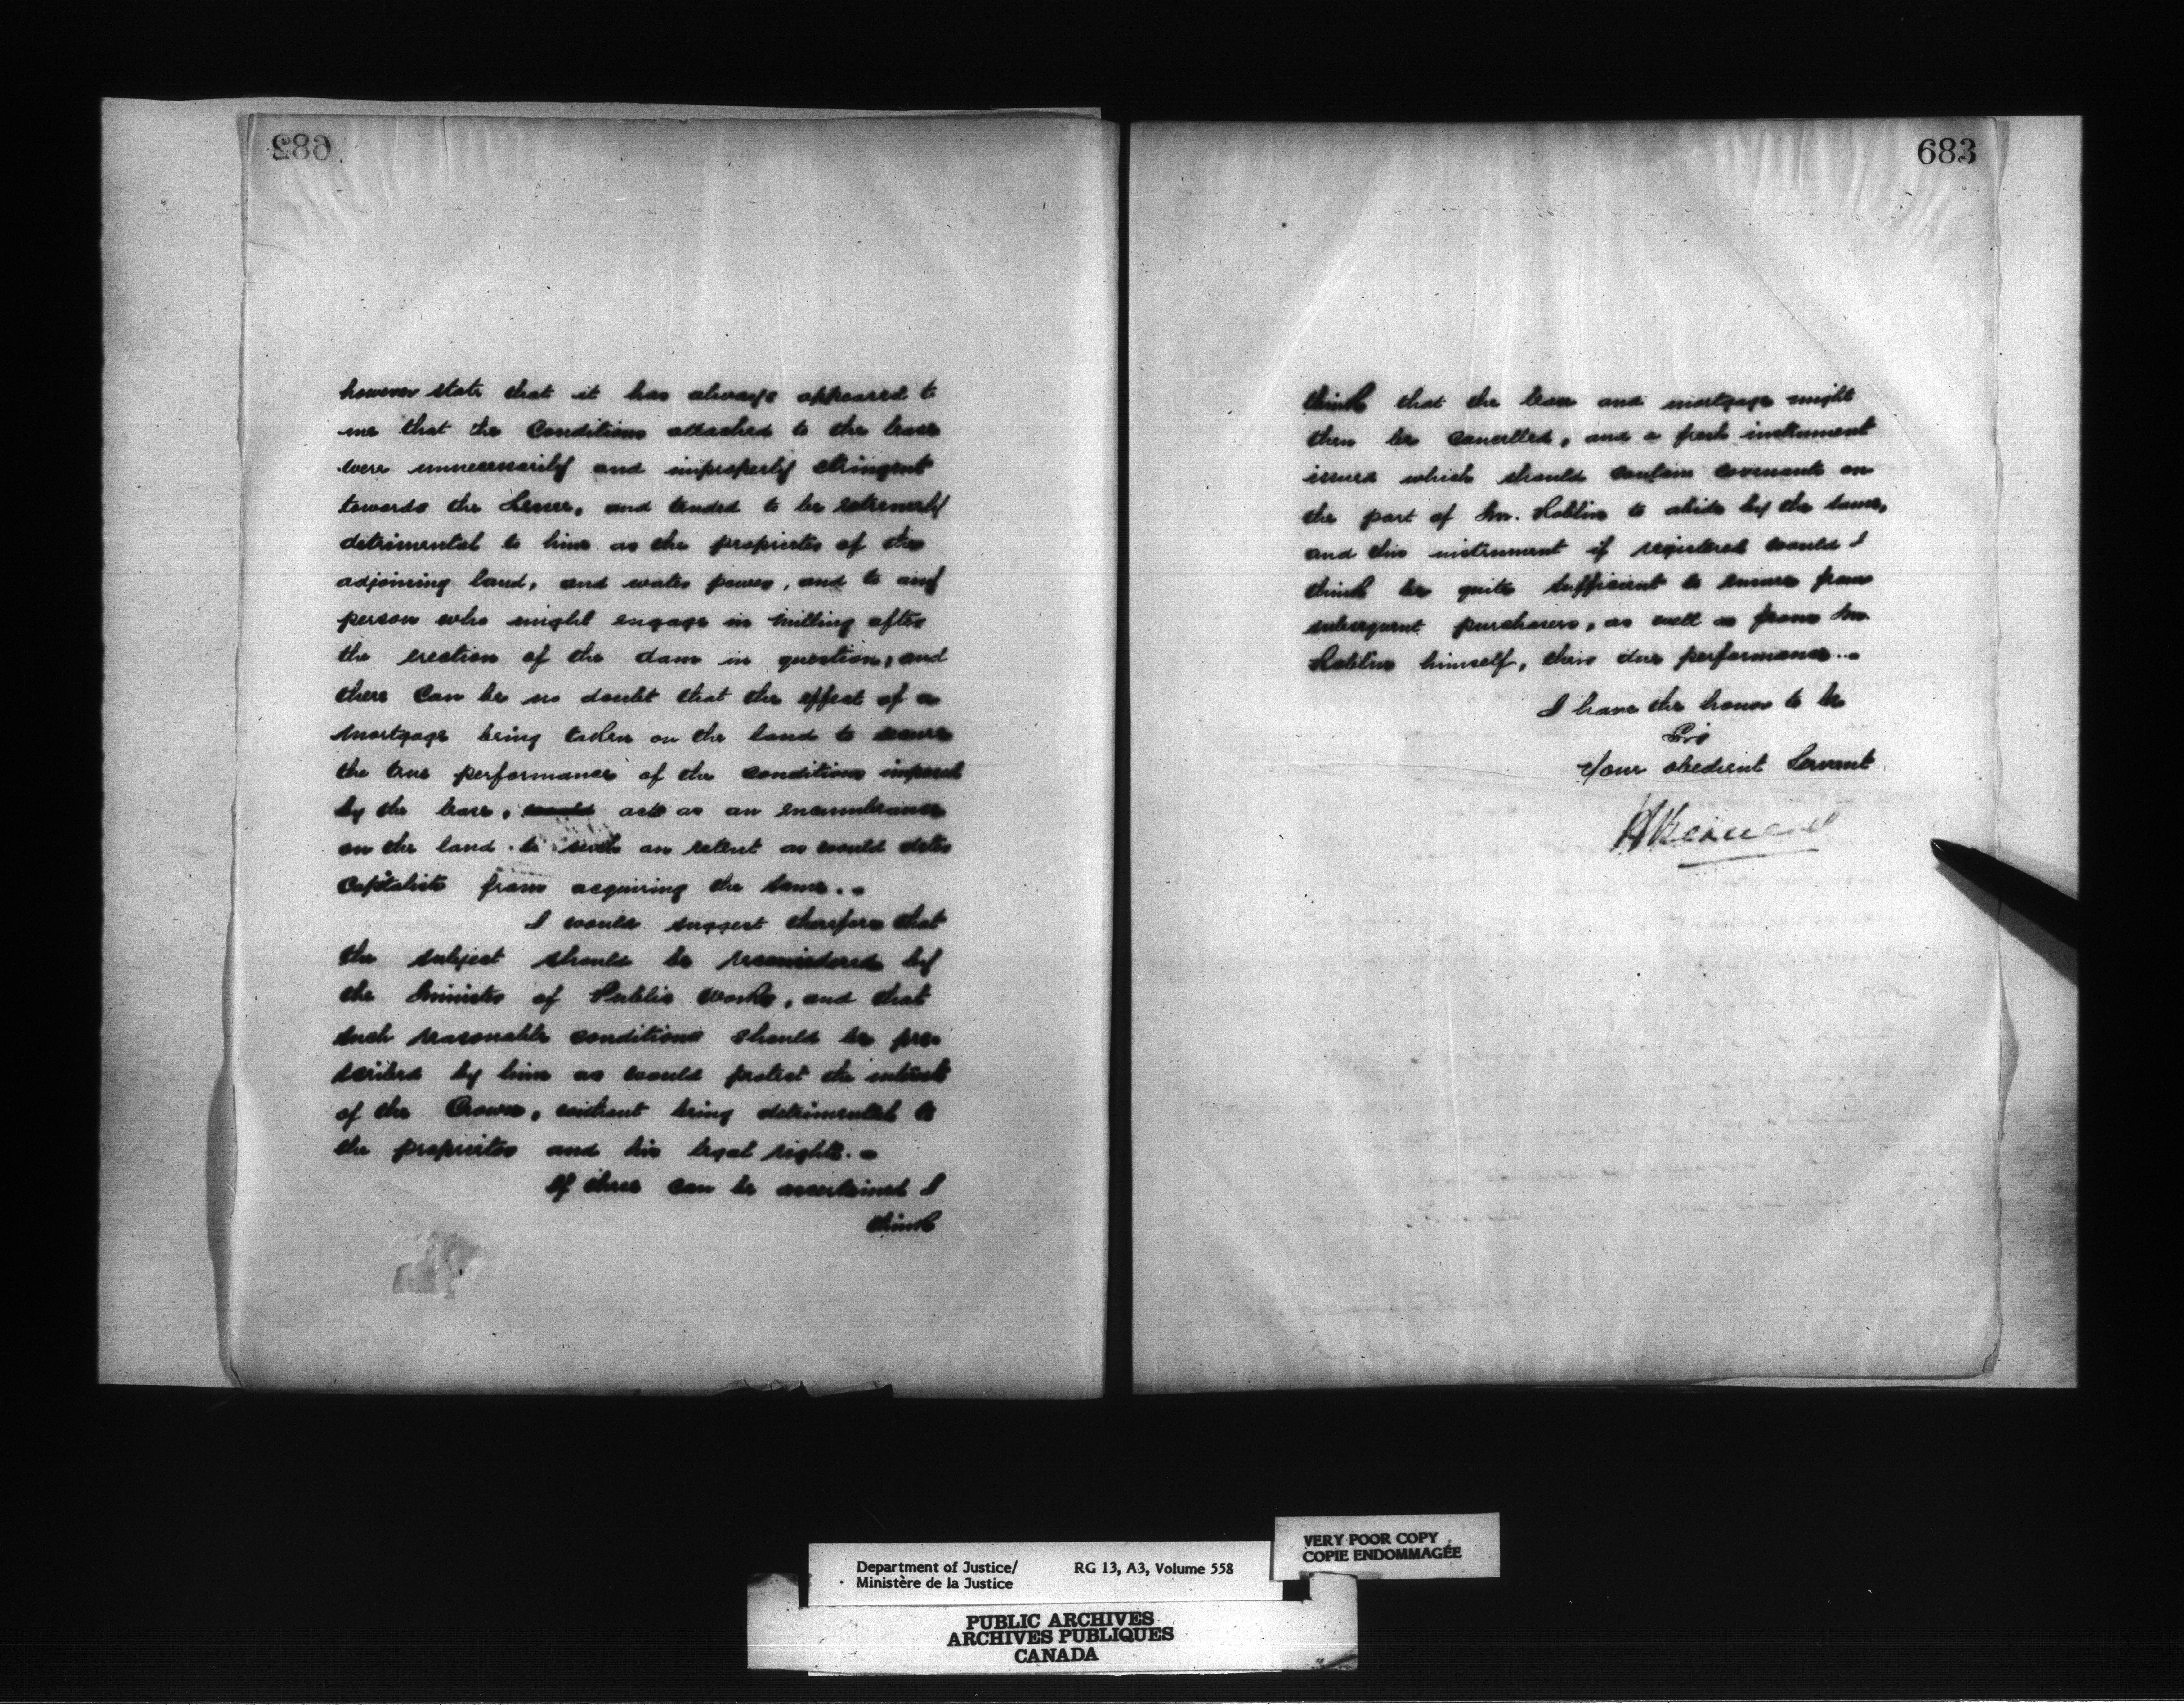 682
however state that it has always appeared to
me that the Conditions attached to the lease
were unnecessarily and improperly stringent
towards the Lessee, and tended to be extremely
detrimental to him as the proprietor of the
adjoining land, and water power, and to any
person who might engage in milling after
the erection of the dam in question, and
there can be no doubt that the effect of a
mortgage being taken on the land to secure
the true performance of the conditions imposed
by the lease, would acts as an encumbrance
on the land to such an extent as would deter
Capitalists from acquiring the same.
I would suggest therefore that
the subject should be reconsidered by
the Minister of Public Works, and that
such reasonable conditions should be pre-
scribed by him as would protect the interest
of the Crown, without being detrimental to
the proprietor and his legal rights.
If these can be ascertained I
think
683
think that the lease and mortgage might
then be cancelled, and a fresh instrument
issued which should contain covenants on
the part of Mr. Roblin to abide by the same,
and this instrument if registered would I
think be quite sufficient to ensure from
subsequent purchasers, as well as from Mr.
Roblin himself, their due performance.
I have the honor to be
Sir
Your obedient Servant
Department of Justice/ RG 13, A3, Volume 558
Ministère de la Justice
VERY POOR COPY
COPIE ENDOMMAGÉE
PUBLIC ARCHIVES
ARCHIVES PUBLIQUES
CANADA